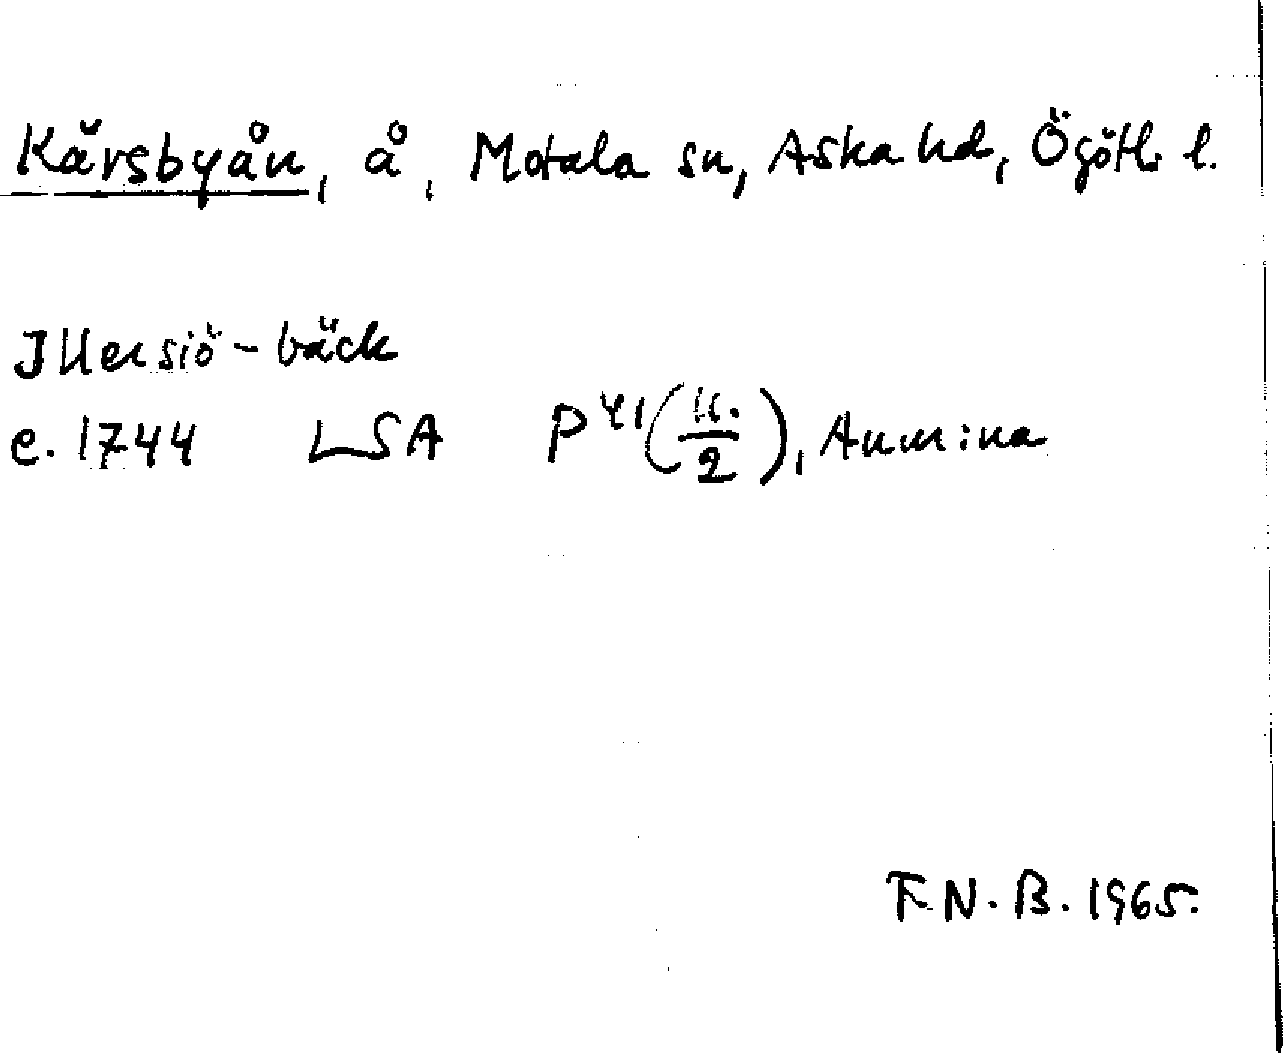 Kärsbyån, å, Motala sn, Aska hd, Ögötl. l.
Illersiö-bäck
e. 1744 LSA P41(11./2), Anmina
F.N.B. 1965.